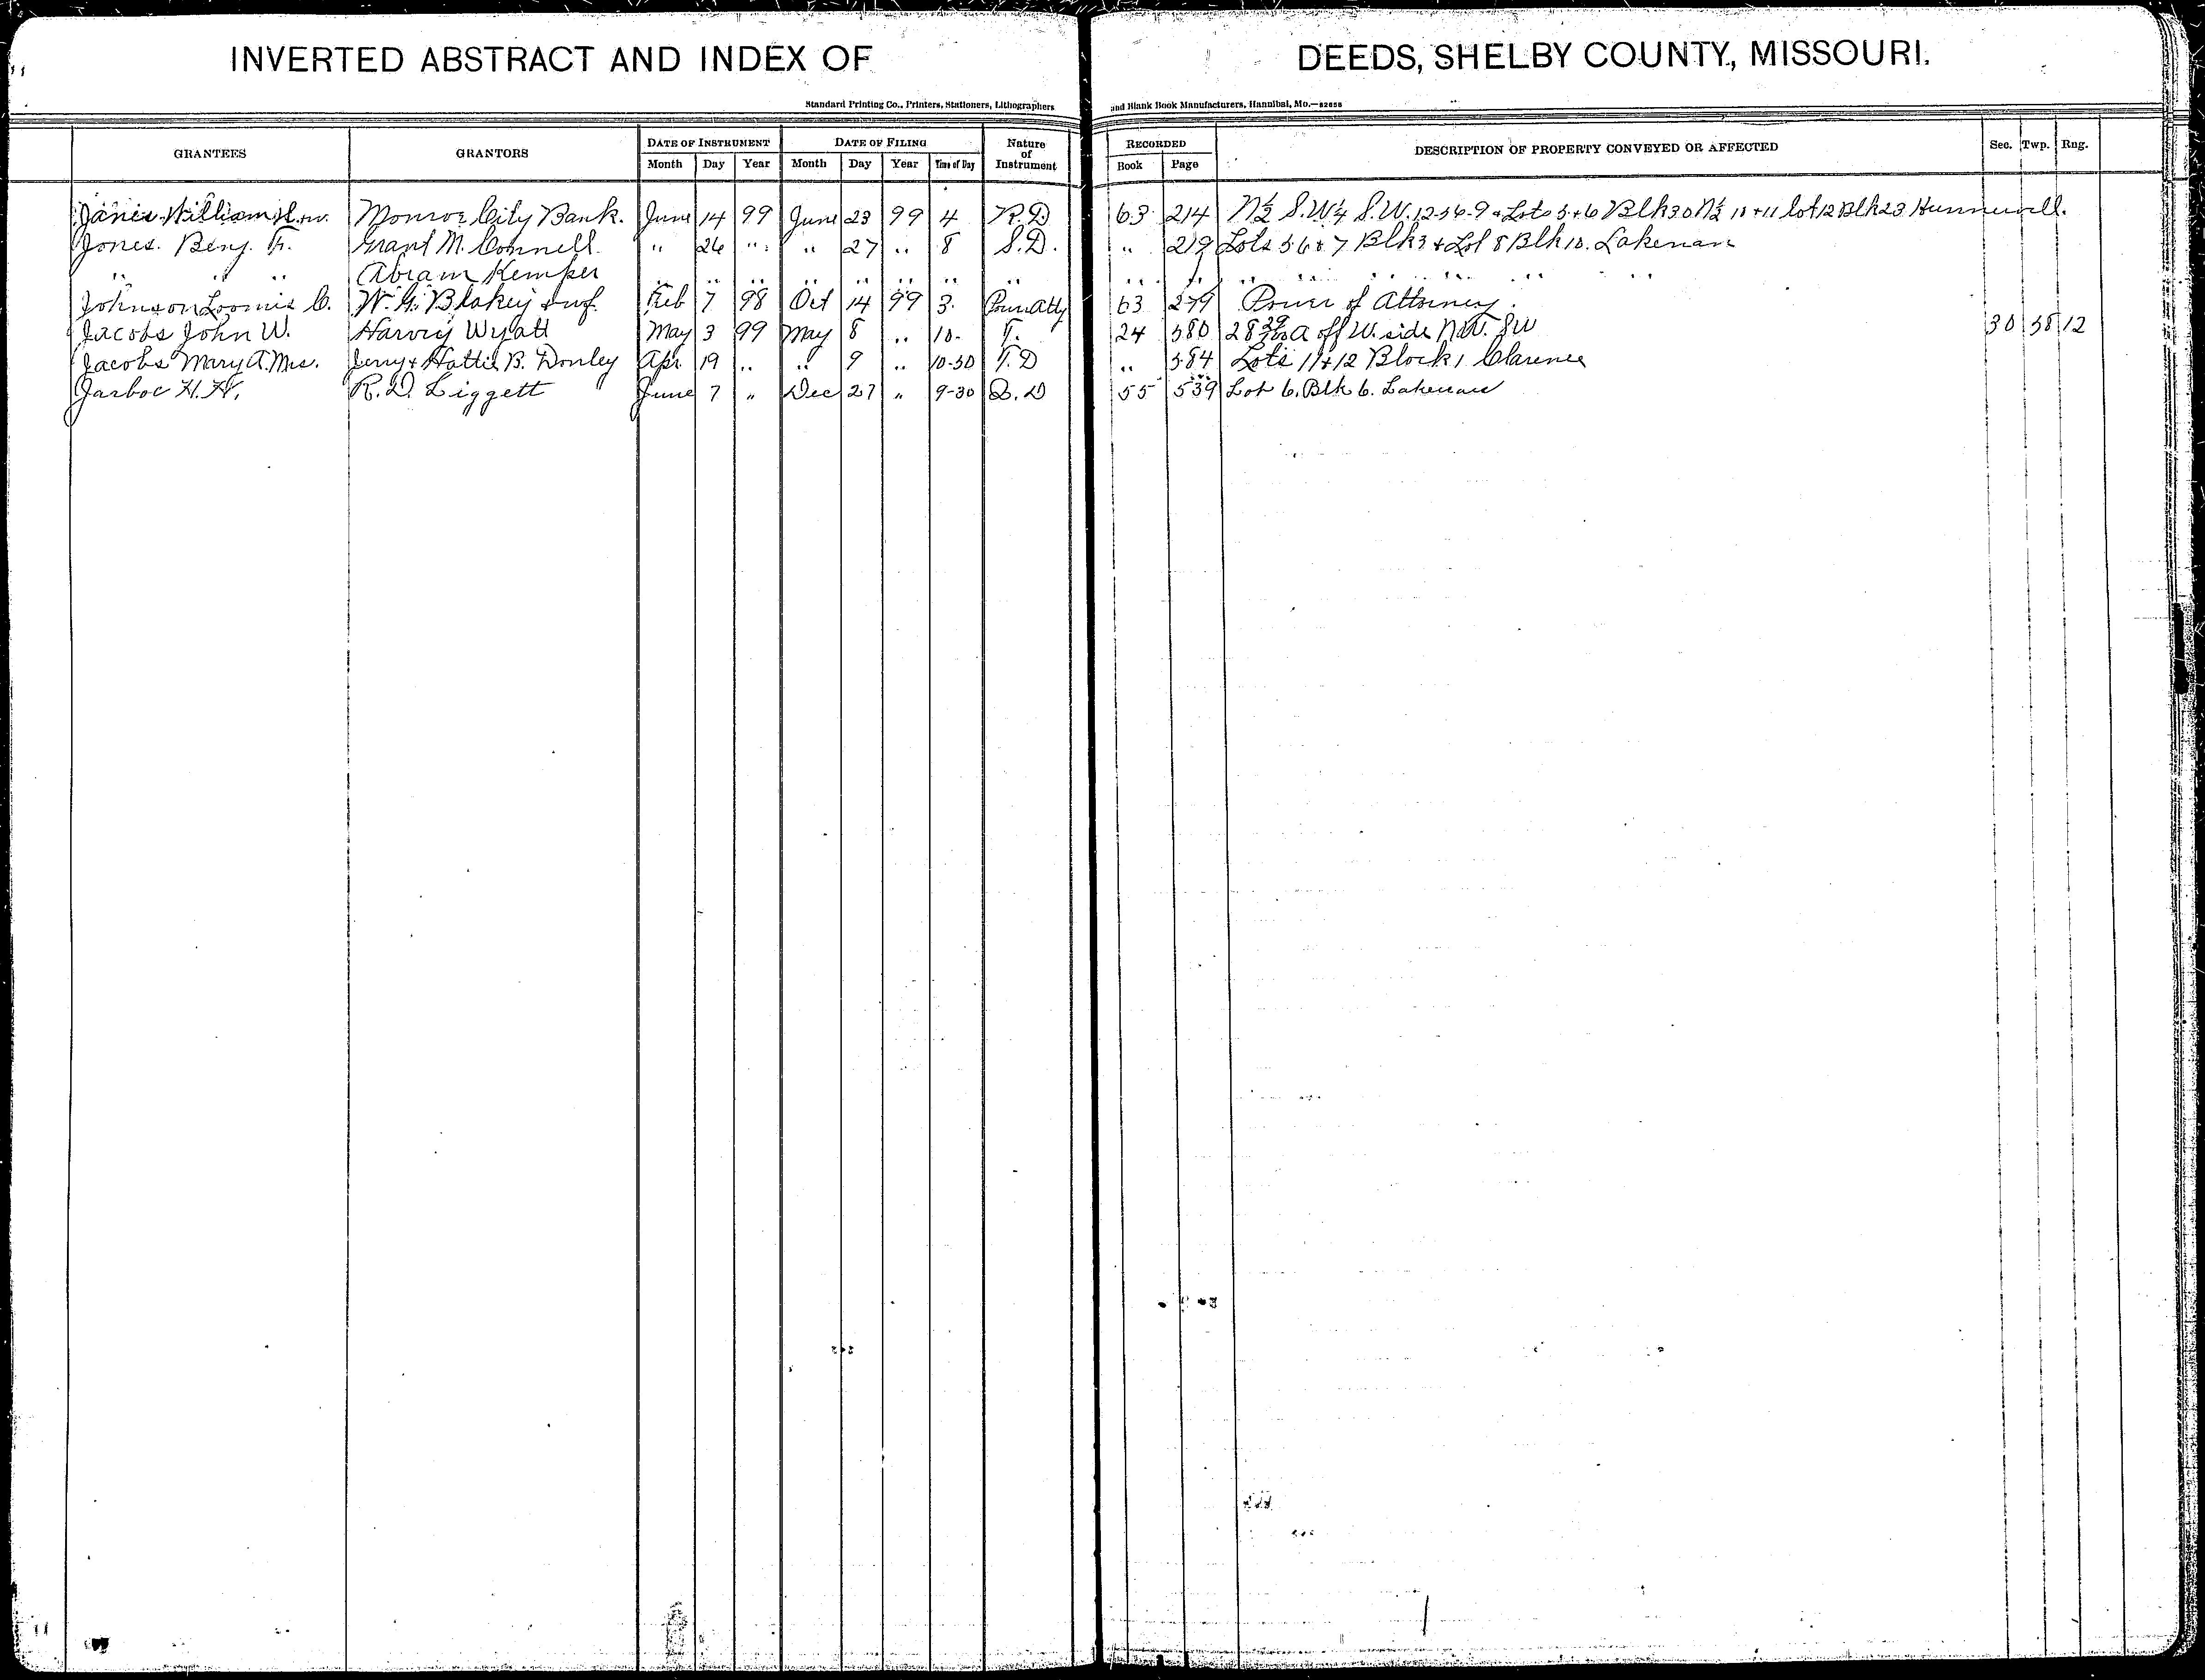 INVERTED ABSTRACT AND INDEX OF DEEDS, SHELBY COUNTY, MISSOURI.
Standard Printing Co., Printers, Stationers, Lithographers and Blank Book Manufacturers, Hannibal, Mo.—82858
GRANTEES GRANTORS DATE OF INSTRUMENT DATE OF FILING Nature of Instrument RECORDED DESCRIPTION OF PROPERTY CONVEYED OR AFFECTED Sec. Twp. Rng.
Month Day Year Month Day Year Time of Day Book Page
Janes William Monroe City Bank. June 14 99 June 23 99 4 R.D. 63 214 N½ S.W¼ S.W. 12-56-9 & Lots 5+6 Blk 30 N½ 10 +11 lot 12 Blk 23 Hunnewell.
Jones. Benj. F. Grant M. Connell " 26 " " 27 " 8 S.D. " 219 Lots 5 6 & 7 Blk 3 & Lot 8 Blk 10. Lakenan
" " " Abram Kemper " " " " " " " " " " " " " " " " " "
Johnson Loomis C. W. G. Blakey & wf. Feb 7 98 Oct 14 99 3. Pow Atty 63 279 Power of Attorney.
Jacobs John W. Harvey Wyatt May 3 99 May 8 " 10- T. 24 580 28 29/100 A off W. side N.W. SW 30 58 12
Jacobs Mary A. Mrs. Jerry + Hattie B. Donley Apr. 19 " " 9 " 10-30 T.D " 584 Lots 11+12 Block 1 Clarence
Jarboe H. H. R. D. Liggett June 7 " Dec 27 " 9-30 Q.D 55 539 Lot 6. Blk 6. Lakenan